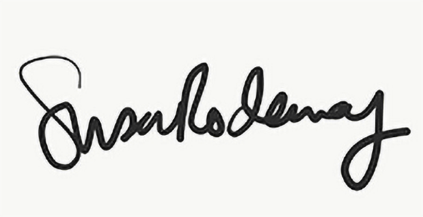 Susan Rodeway